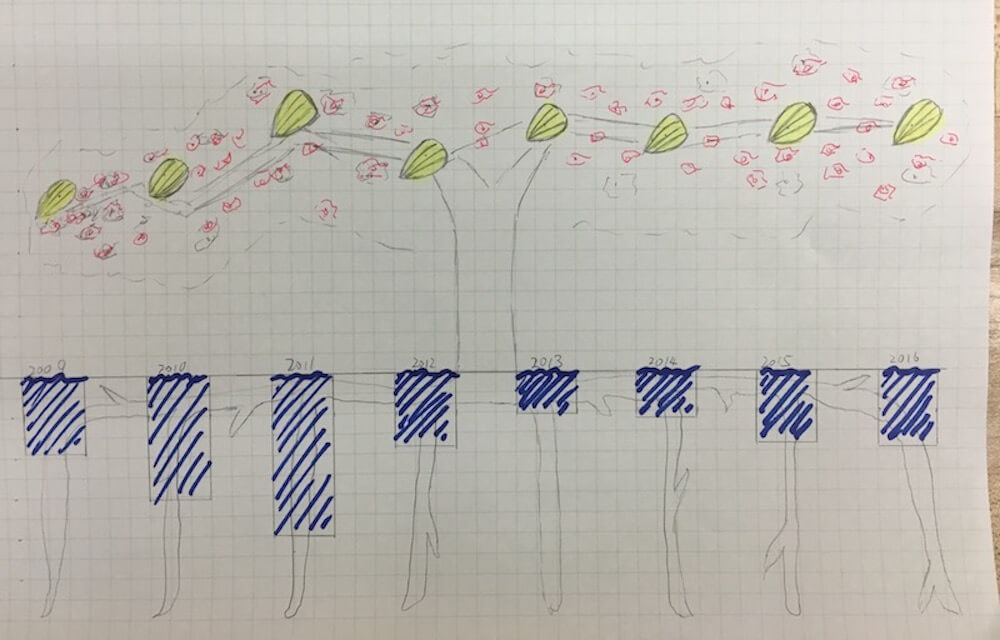 2009 2010 2011 2012 2013 2014 2015 2016